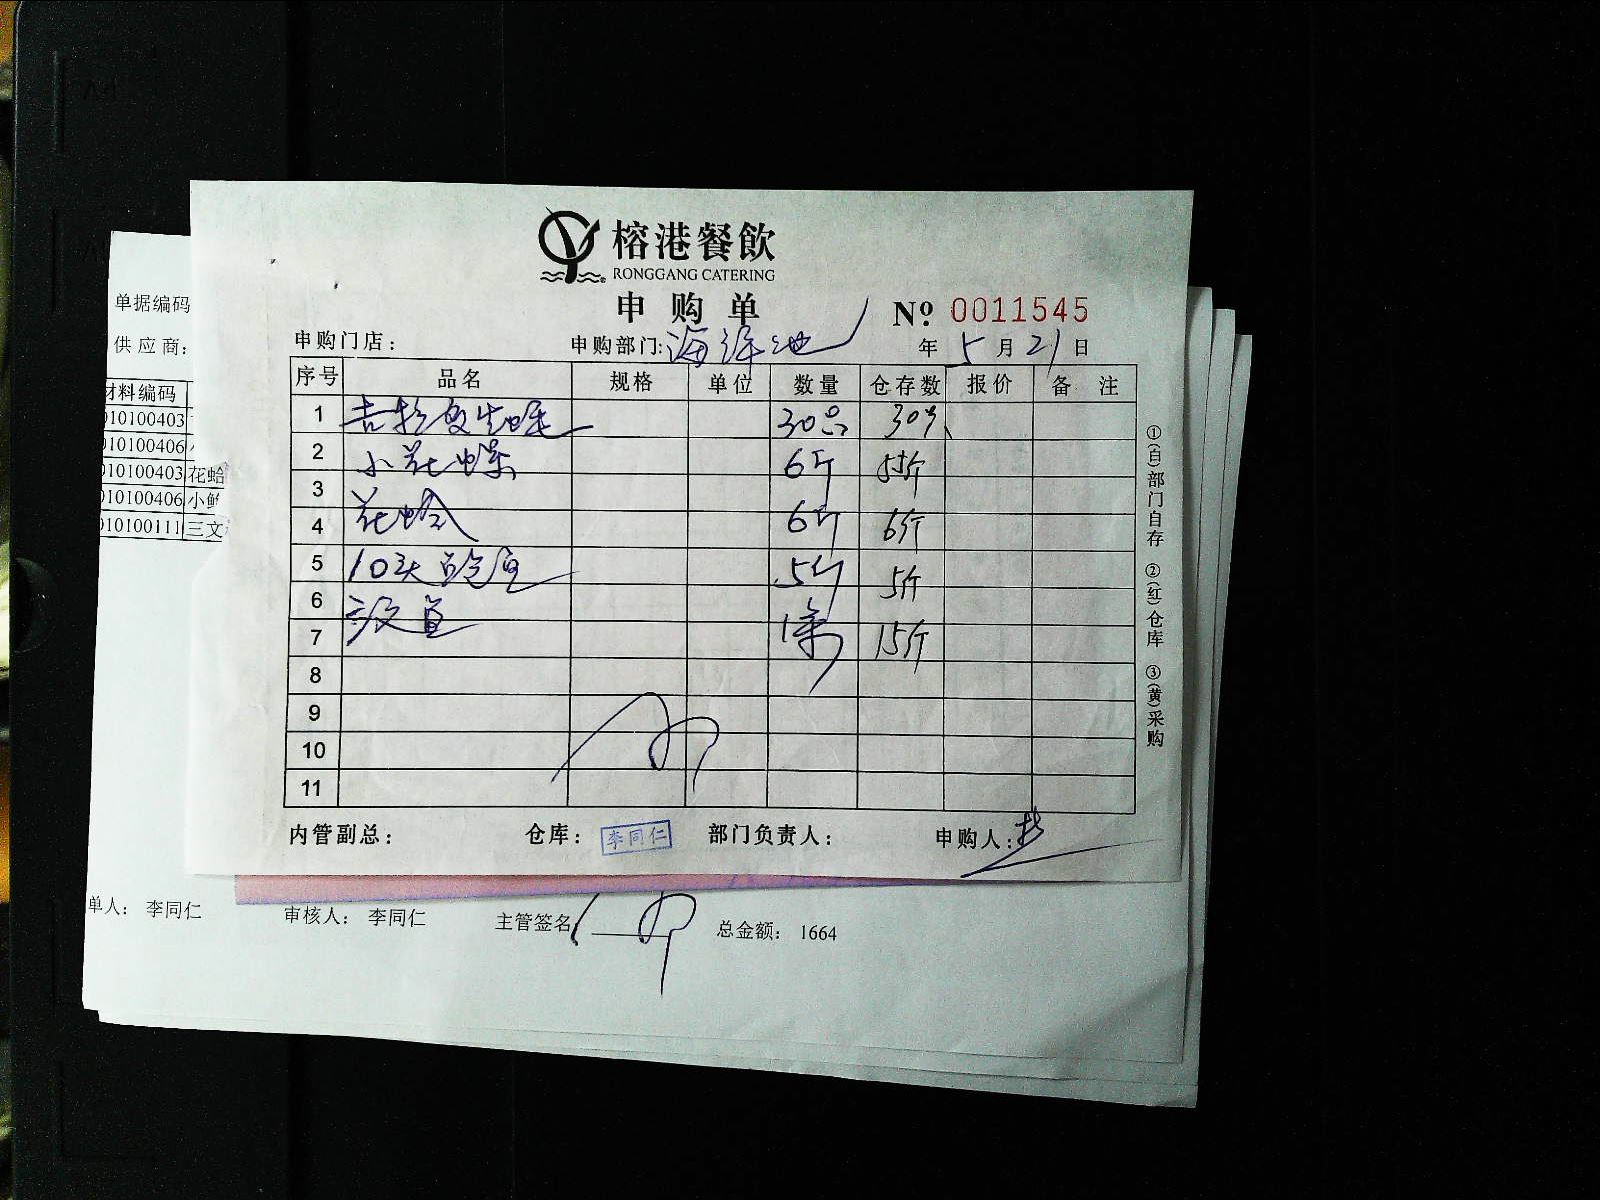 榕港餐飲
RONGGANG CATERING
申购单
№ 0011545
申购门店： 申购部门: 海鲜池 年 5 月 21 日
序号 品名 规格 单位 数量 仓存数 报价 备 注
1 吉拉多生蚝 30只 30只
2 小花螺 6斤 5.5斤
3
4 花蛤 6斤 6斤
5 10头鲍鱼 5斤 5斤
6
7 1条 15斤
8
9
10
11
内管副总： 仓库： 李同仁 部门负责人： 申购人：
①(白)部门自存 ②(红)仓库 ③(黄)采购
单据编码
供应商：
材料编码
010100403
010100406
010100403 花蛤
010100406 小鲍
010100111 三文
单人： 李同仁 审核人： 李同仁 主管签名 总金额： 1664